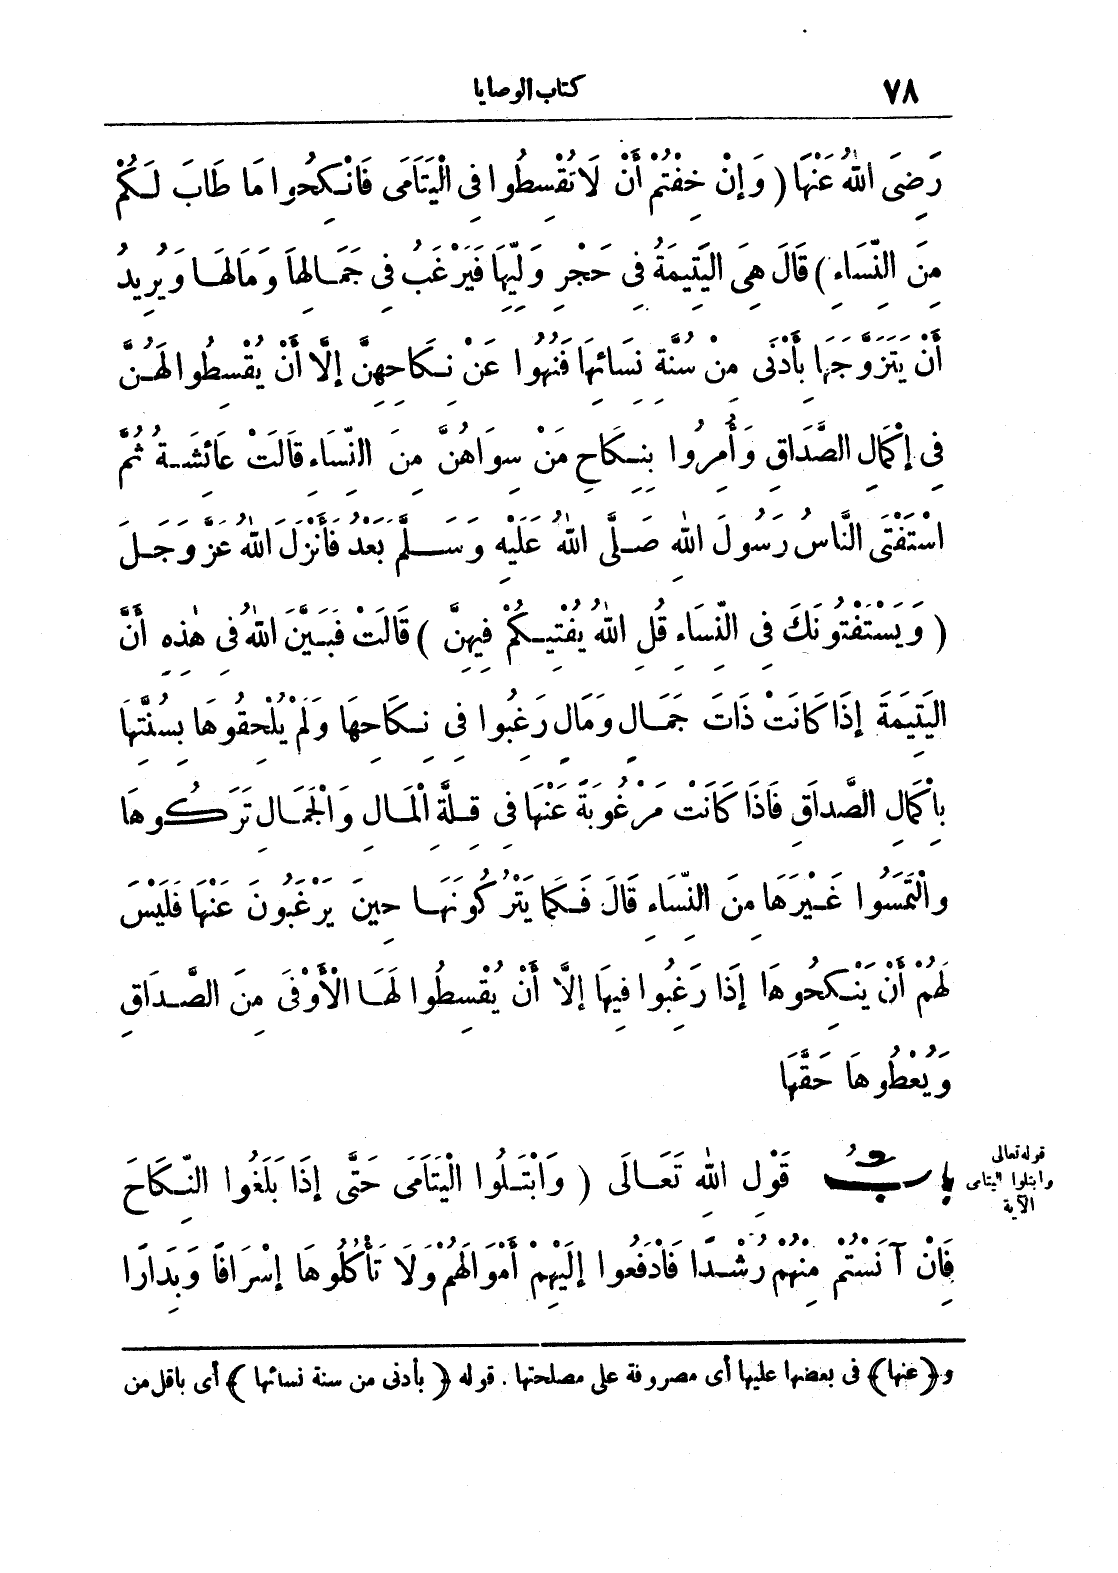 ٧٨ كتاب الوصايا
رَضِىَ اللهُ عَنْهَا ( وَإِنْ خِفْتُمْ أَنْ لَا تُقْسِطُوا فِى الْيَتَامَى فَانْكِحُوا مَا طَابَ لَكُمْ
مِنَ النِّسَاءِ ) قَالَ هِىَ الْيَتِيمَةُ فِى حَجْرِ وَلِيِّهَا فَيَرْغَبُ فِى جَمَالِهَا وَمَالِهَا وَيُرِيدُ
أَنْ يَتَزَوَّجَهَا بِأَدْنَى مِنْ سُنَّةِ نِسَائِهَا فَنُهُوا عَنْ نِكَاحِهِنَّ إِلَّا أَنْ يُقْسِطُوا لَهُنَّ
فِى إِكْمَالِ الصَّدَاقِ وَأُمِرُوا بِنِكَاحِ مَنْ سِوَاهُنَّ مِنَ النِّسَاءِ قَالَتْ عَائِشَةُ ثُمَّ
اسْتَفْتَى النَّاسُ رَسُولَ اللهِ صَلَّى اللهُ عَلَيْهِ وَسَلَّمَ بَعْدُ فَأَنْزَلَ اللهُ عَزَّ وَجَلَّ
( وَيَسْتَفْتُونَكَ فِى النِّسَاءِ قُلِ اللهُ يُفْتِيكُمْ فِيهِنَّ ) قَالَتْ فَبَيَّنَ اللهُ فِى هٰذِهِ أَنَّ
الْيَتِيمَةَ إِذَا كَانَتْ ذَاتَ جَمَالٍ وَمَالٍ رَغِبُوا فِى نِكَاحِهَا وَلَمْ يُلْحِقُوهَا بِسُنَّتِهَا
بِاكْمَالِ الصَّدَاقِ فَاذَا كَانَتْ مَرْغُوبَةً عَنْهَا فِى قِلَّةِ الْمَالِ وَالْجَمَالِ تَرَكُوهَا
والْتَمَسُوا غَيْرَهَا مِنَ النِّسَاءِ قَالَ فَكَمَا يَتْرُكُونَهَا حِينَ يَرْغَبُونَ عَنْهَا فَلَيْسَ
لَهُمْ أَنْ يَنْكِحُوهَا إِذَا رَغِبُوا فِيهَا إِلَّا أَنْ يُقْسِطُوا لَهَا الْأَوْفَى مِنَ الصَّدَاقِ
وَيُعْطُوهَا حَقَّهَا
قوله تعالى
وابتلوا اليتامى
الآية
بابُ قَوْلِ اللهِ تَعَالَى ( وَابْتَلُوا الْيَتَامَى حَتَّى إِذَا بَلَغُوا النِّكَاحَ
فَانْ آنَسْتُمْ مِنْهُمْ رُشْدًا فَادْفَعُوا إِلَيْهِمْ أَمْوَالَهُمْ وَلَا تَأْكُلُوهَا إِسْرَافًا وَبِدَارًا
و﴿عنها﴾ فى بعضها عليها أى مصروفة على مصلحتها . قوله ﴿ بأدنى من سنة نسائها ﴾ أى باقل من